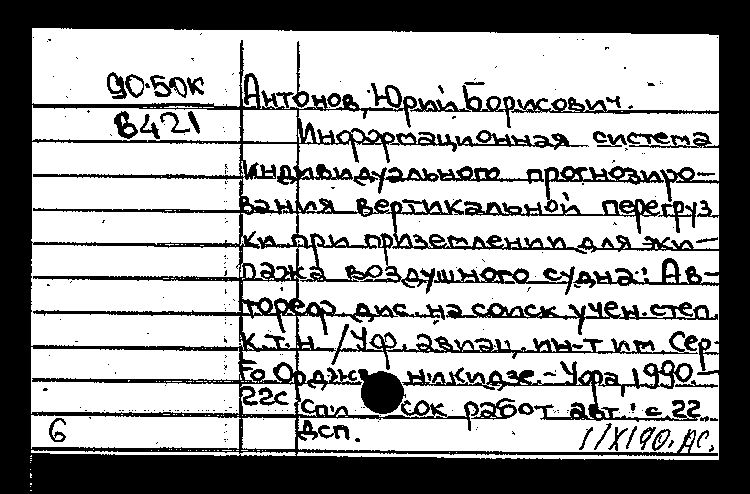 90.50к
8421
Антонов, Юрий Борисович.
Информационная система
индивидуального прогнозиро-
вания вертикальной перегруз
ки при приземлении для эки-
пажа воздушного судна: Ав-
тореф дис. на соиск учен. степ.
к.т.н. /Уф. авиац. ин-т им. Сер-
го Орджоникидзе. - Уфа, 1990. -
22с Список работ авт.: с.22.
Дсп.
6
1/X190. Дс.